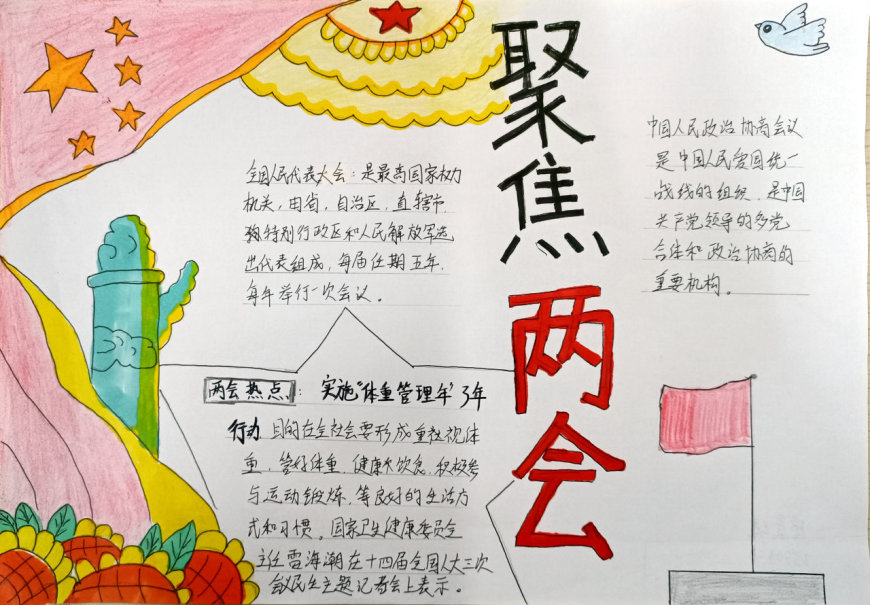 聚焦两会
全国人民代表大会：是最高国家权力
机关，由省，自治区，直辖市，
特别行政区和人民解放军选
出代表组成，每届任期五年，
每年举行一次会议。
中国人民政治协商会议
是中国人民爱国统一
战线的组织，是中国
共产党领导的多党
合作和政治协商的
重要机构。
两会热点：实施"体重管理年"3年
行动 目的在全社会要形成重视体
重，管好体重，健康饮食，积极参
与运动锻炼，等良好的生活方
式和习惯。国家卫生健康委员会
主任雷海潮在十四届全国人大三次
会议民生主题记者会上表示。